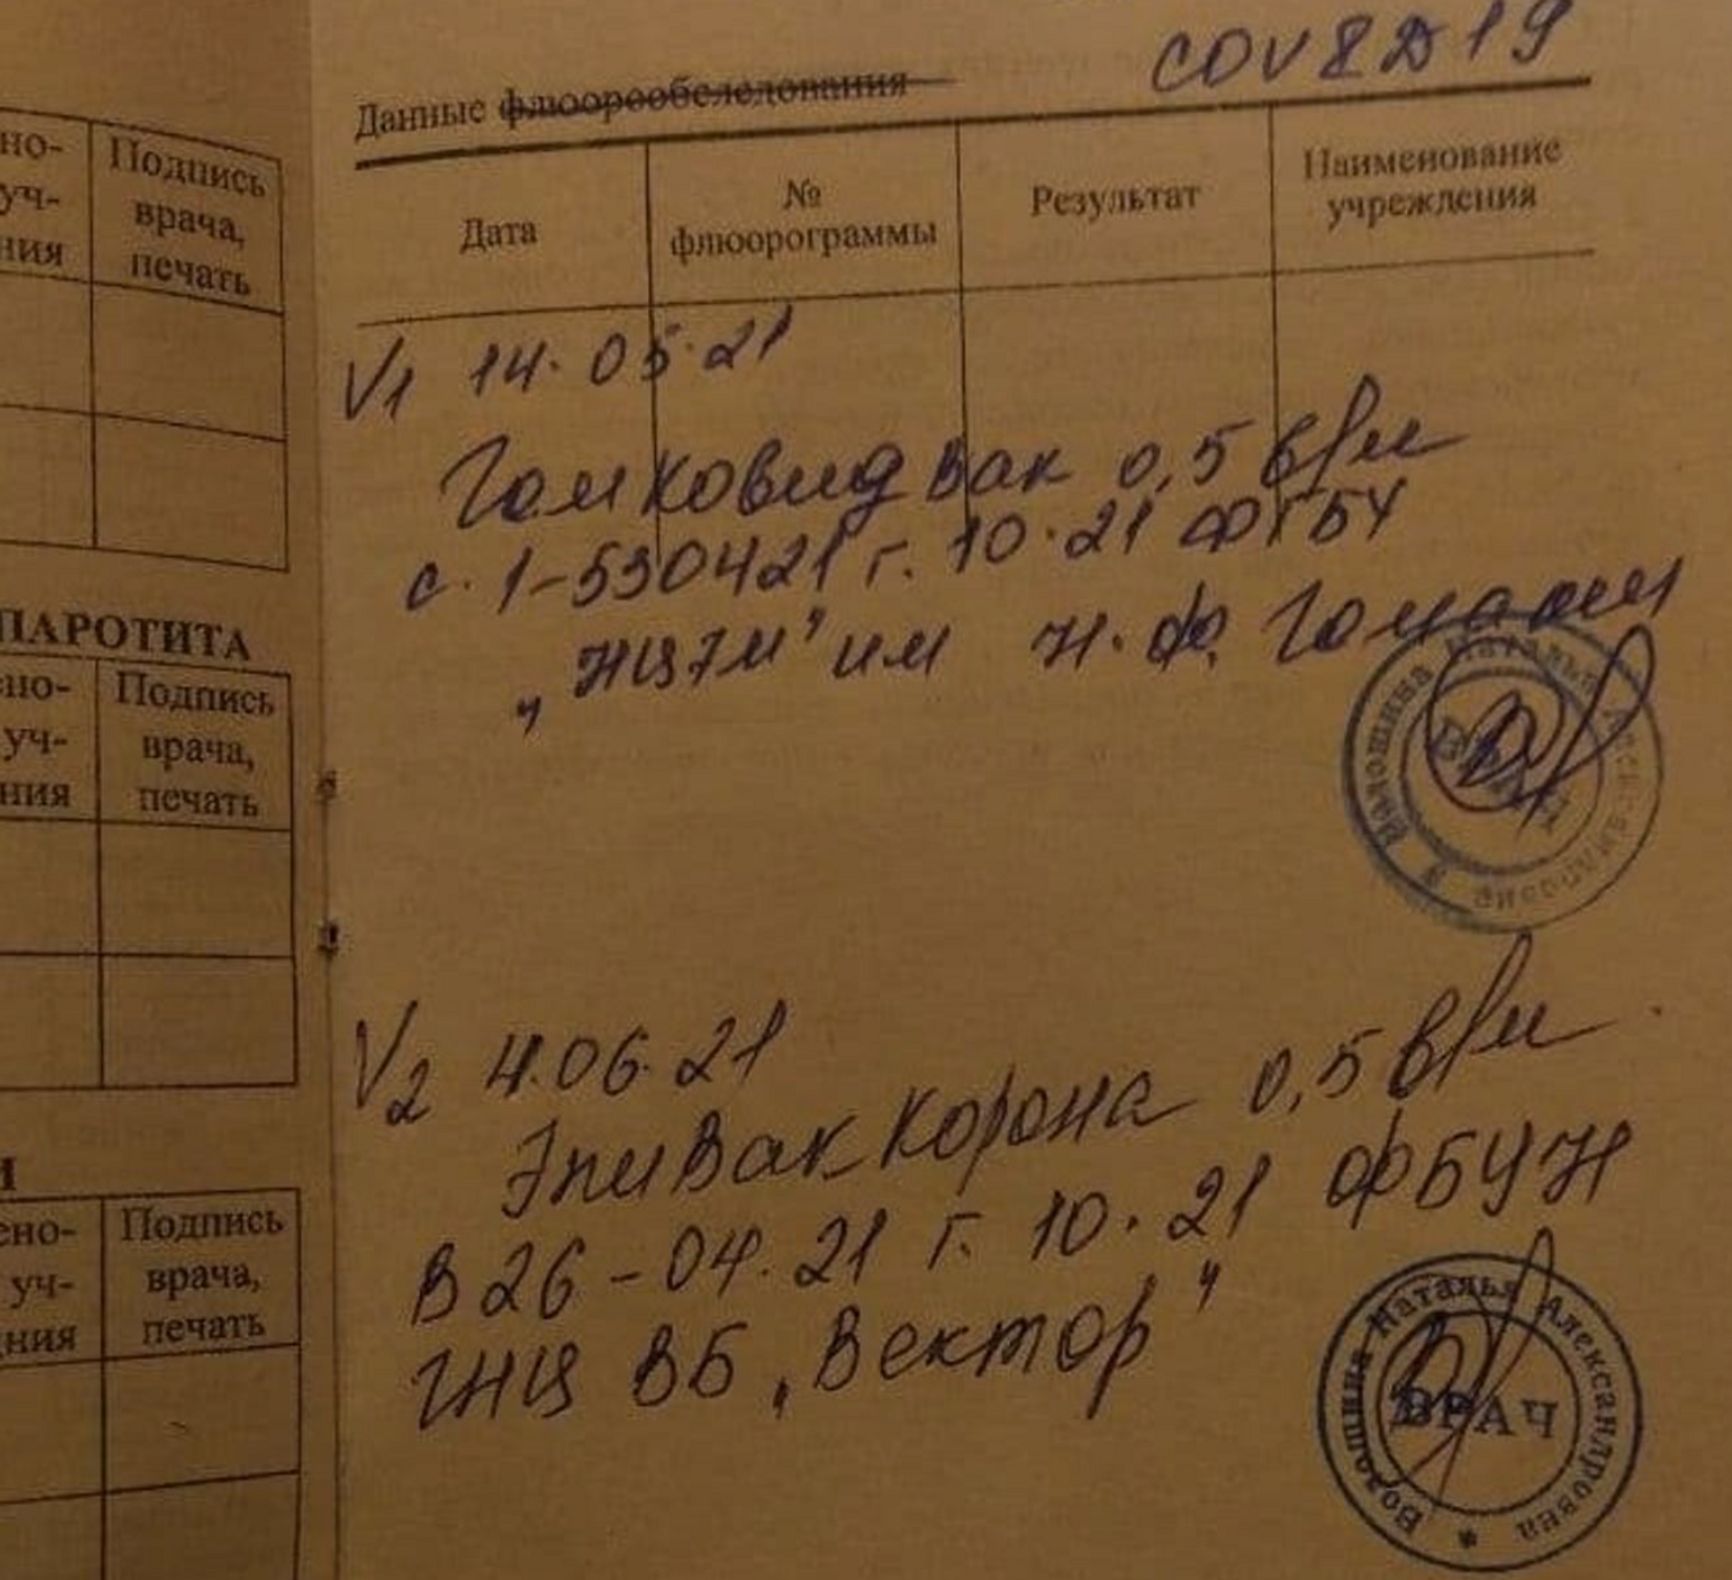 но-
уч-
ния
Подпись
врача,
печать
ПАРОТИТА
но-
уч-
ния
Подпись
врача,
печать
и
ено-
уч-
ния
Подпись
врача,
печать
COV8D19
Данные флюорообследования
Дата
№
флюорограммы
Результат
Наименование
учреждения
V1 14.05.21
Гамковидвак 0,5 в/м
с. 1-530421 г. 10.21 ФГБУ
„НЦЭМ" им Н.Ф. Гамалеи
Волошина Наталья Александровна
ВРАЧ
V2 4.06.21
ЭпиВакКорона 0,5 в/м
В26-04.21 г. 10.21 ФБУН
ГНЦ ВБ „Вектор"
Волошина Наталья Александровна
ВРАЧ